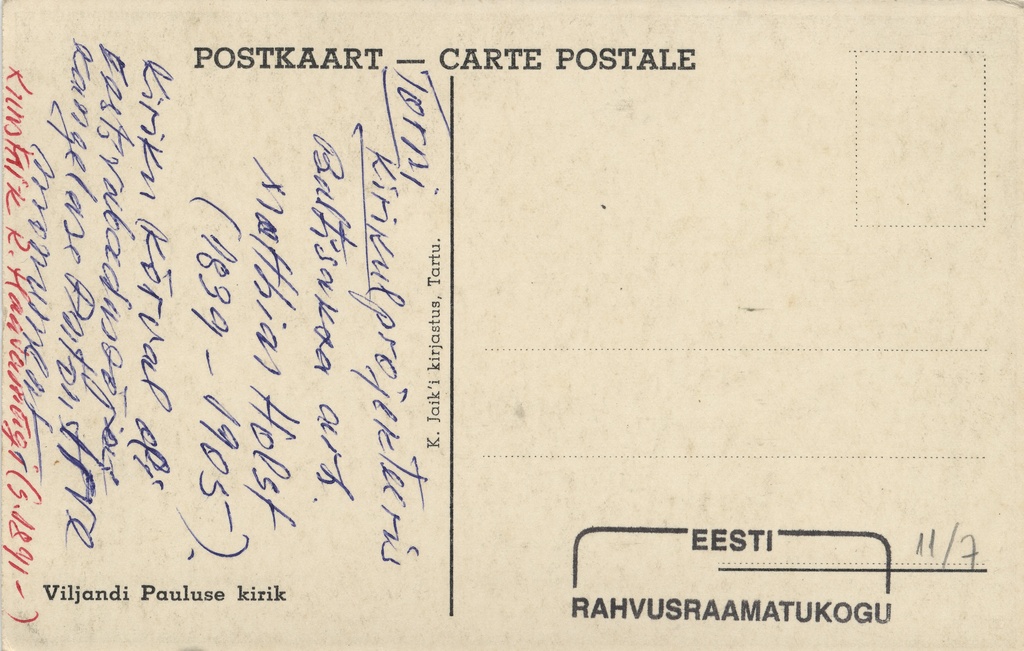 POSTKAART — CARTE POSTALE
Torni
kirikul projekteeris
Baltisaksa arh.
Matthias Holst
(1839 - 1905)
Kiriku kõrval oli
Eesti vabadussõja
kangelase
monument
Kunstnik R. Haavamägi (s. 1891 - )
K. Jaik'i kirjastus, Tartu.
Viljandi Pauluse kirik
EESTI
RAHVUSRAAMATUKOGU
11/7